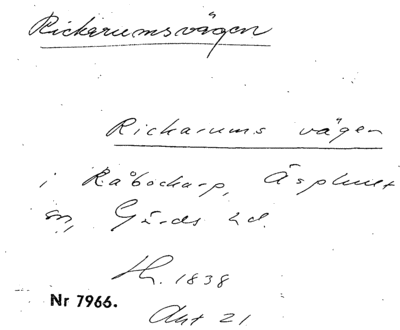 Rickarumsvägen
Rickarums vägen
i Råbockarp, Äsphult
sn, Gärds hd.
Hr. 1838
Nr 7966.
Akt 21